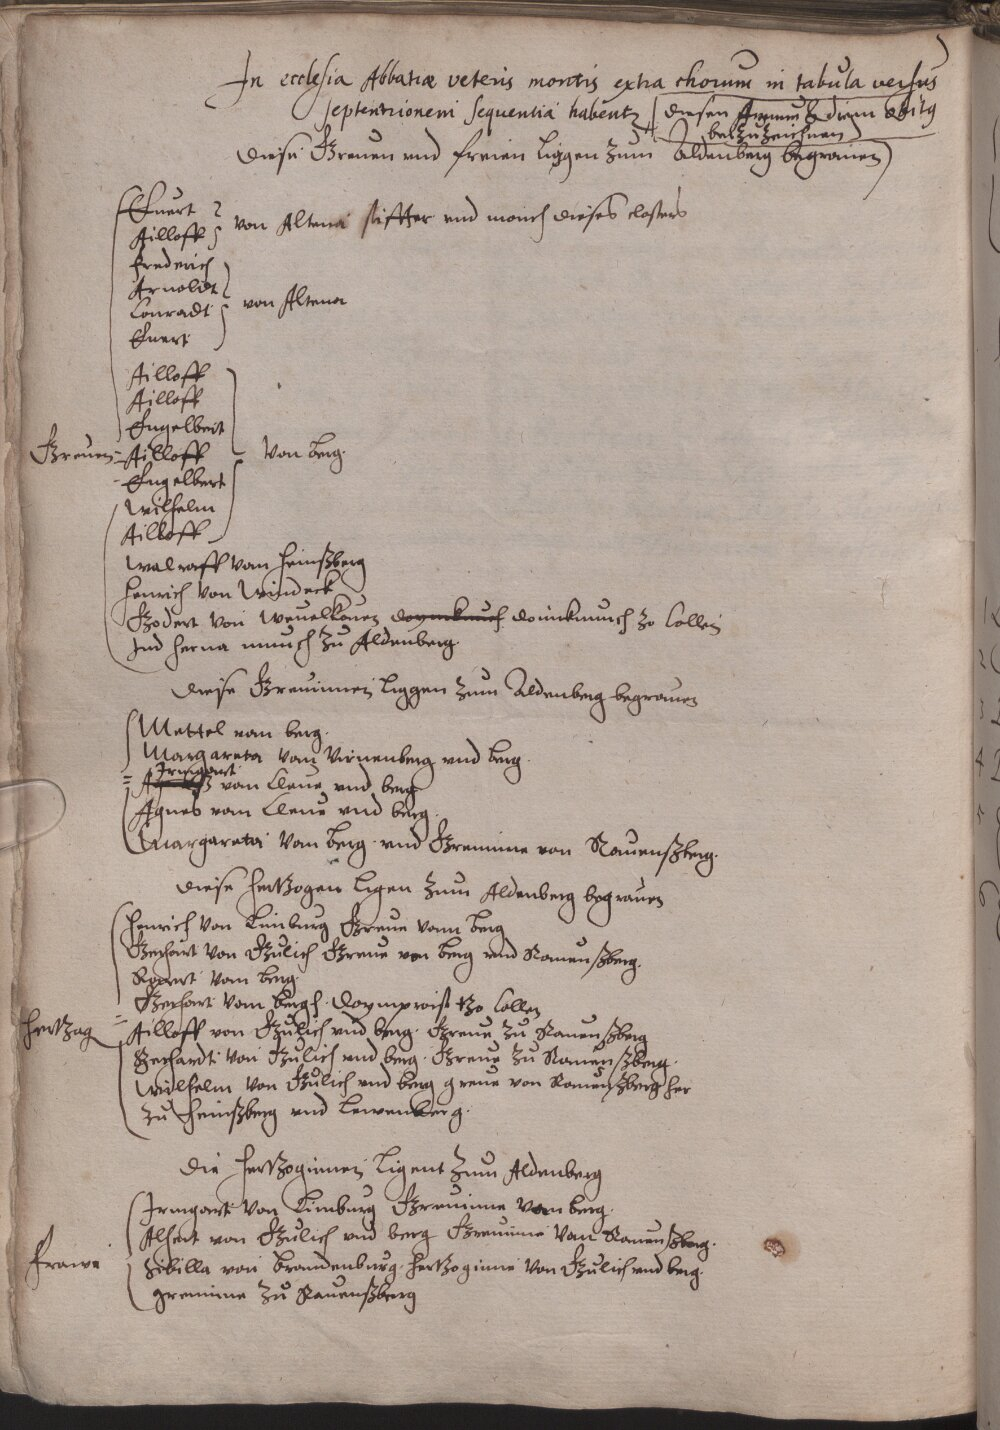 In ecclesia Abbatiæ veteris montis extra chorum in tabula versus
septentrionem sequentia habentur (diesen Annum & diem obitus
beizuzeichnen)
Diese Greuen vnd freien liggen zum Aldenberg begrauen)
Euert
Ailloff
von Altena stiffter vnd monch dieses closters
Frederich
Arnoldt
Conradt
Euert
von Altena
Ailloff
Ailloff
Engelbert
Greuen Ailloff von Berg.
Engelbert
Wilhelm
Ailloff
Walraff van Heinßberg
Henrich von Windeck
Godert von Weuelkouen doemkmuch zo Collen
Ind herna munch zu Aldenberg.
Diese Greuinnen liggen zum Aldenberg begrauen
Mettel van berg.
Margareta van Virnenberg vnd berg.
Irmgart
vam Cleue vnd berg
Agnes vam Cleue vnd berg.
Margareta van berg vnd Greuinne von Rauenßberg.
Diese Hertzogen ligen zum Aldenberg begrauen
Henrich von Limburg Greue vann berg
Gerhart von Gulich Greue von berg vnd Rauenßberg.
Robert vam berg.
Gerhart vam bergh. Doymproist tzo Collen
Hertzog Ailloff von Gulich vnd berg. Greue zu Rauenßberg
Gerhardt von Gulich vnd berg. Greue zu Rauenßberg.
Wilhelm von Gulich vnd berg greue von Rauenßberg her
zu Heinßberg vnd Lewenberg.
Die Hertzoginnen ligent zum Aldenberg
Irmgart von Limburg Greuinne van berg.
Alheit von Gulich vnd berg Greuinne van Rauenßberg.
Frawe Sibilla von Brandenburg. Hertzoginne von Gulich vnd berg.
greuinne zu Rauenßberg